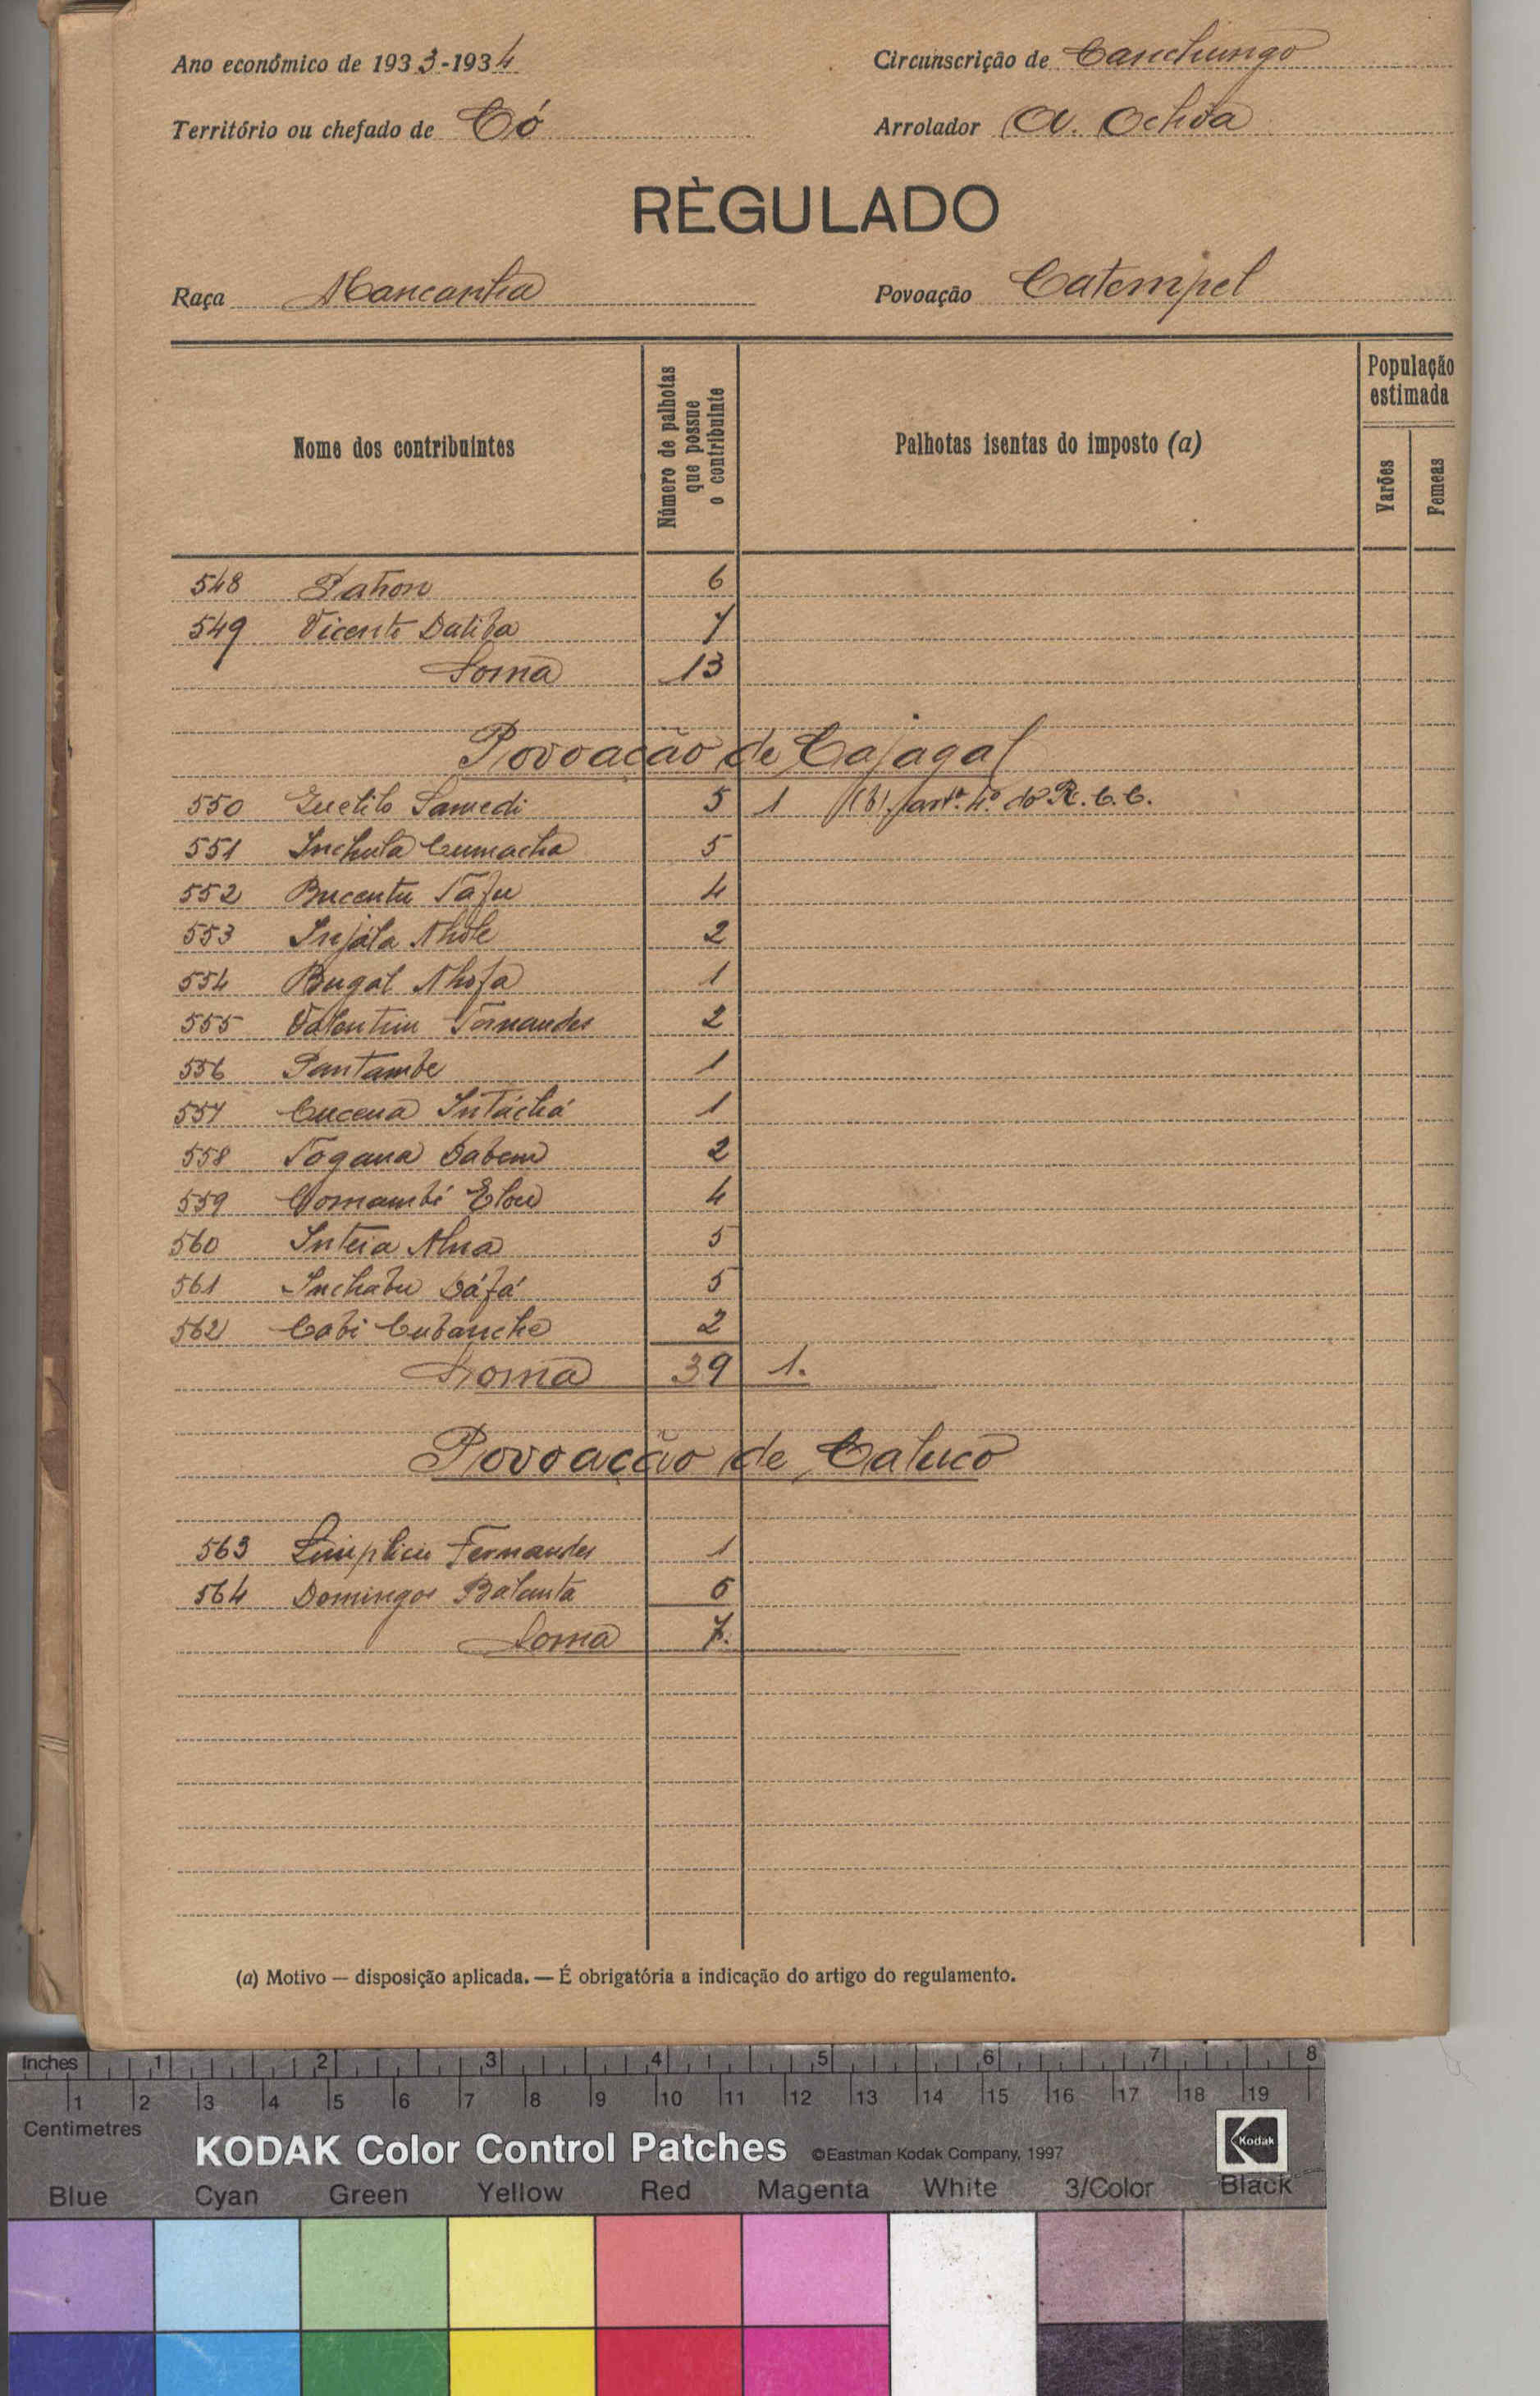 Ano económico de 1933-1934 Circunscrição de Canchungo
Território ou chefado de Có Arrolador A. Ochôa
RÈGULADO
Raça Mancanha Povoação Catempel
Nome dos contribuintes
Número de palhotas que possue o contribuinte
Palhotas isentas do imposto (a)
População estimada
Varões
Femeas
548 Patron 6
549 Vicente Batiba 7
Soma 13
Povoação de Cajagal
550 Samedi 5 1 (b) artº. 4º do R.C.C.
551 Inchula Cumacha 5
552 Bucentu Tafu 4
553 Injala Nhole 2
554 Bugal Nhofa 1
555 Valentim Fernandes 2
556 Pantambe 1
557 Cucena Intáchá 1
558 Togana Dabem 2
559 Comambi Elou 4
560 Inteia Nhua 5
561 Inchabu Dáfá 5
562 Cabi Cubanche 2
Soma 39 1.
Povoação de Calucó
563 Simplicio Fernandes 1
564 Domingos Balanta 6
Soma 7.
(a) Motivo — disposição aplicada. — É obrigatória a indicação do artigo do regulamento.
Inches 1 2 3 4 5 6 7 8
1 2 3 4 5 6 7 8 9 10 11 12 13 14 15 16 17 18 19
Centimetres
KODAK Color Control Patches ©Eastman Kodak Company, 1997 Kodak
Blue Cyan Green Yellow Red Magenta White 3/Color Black